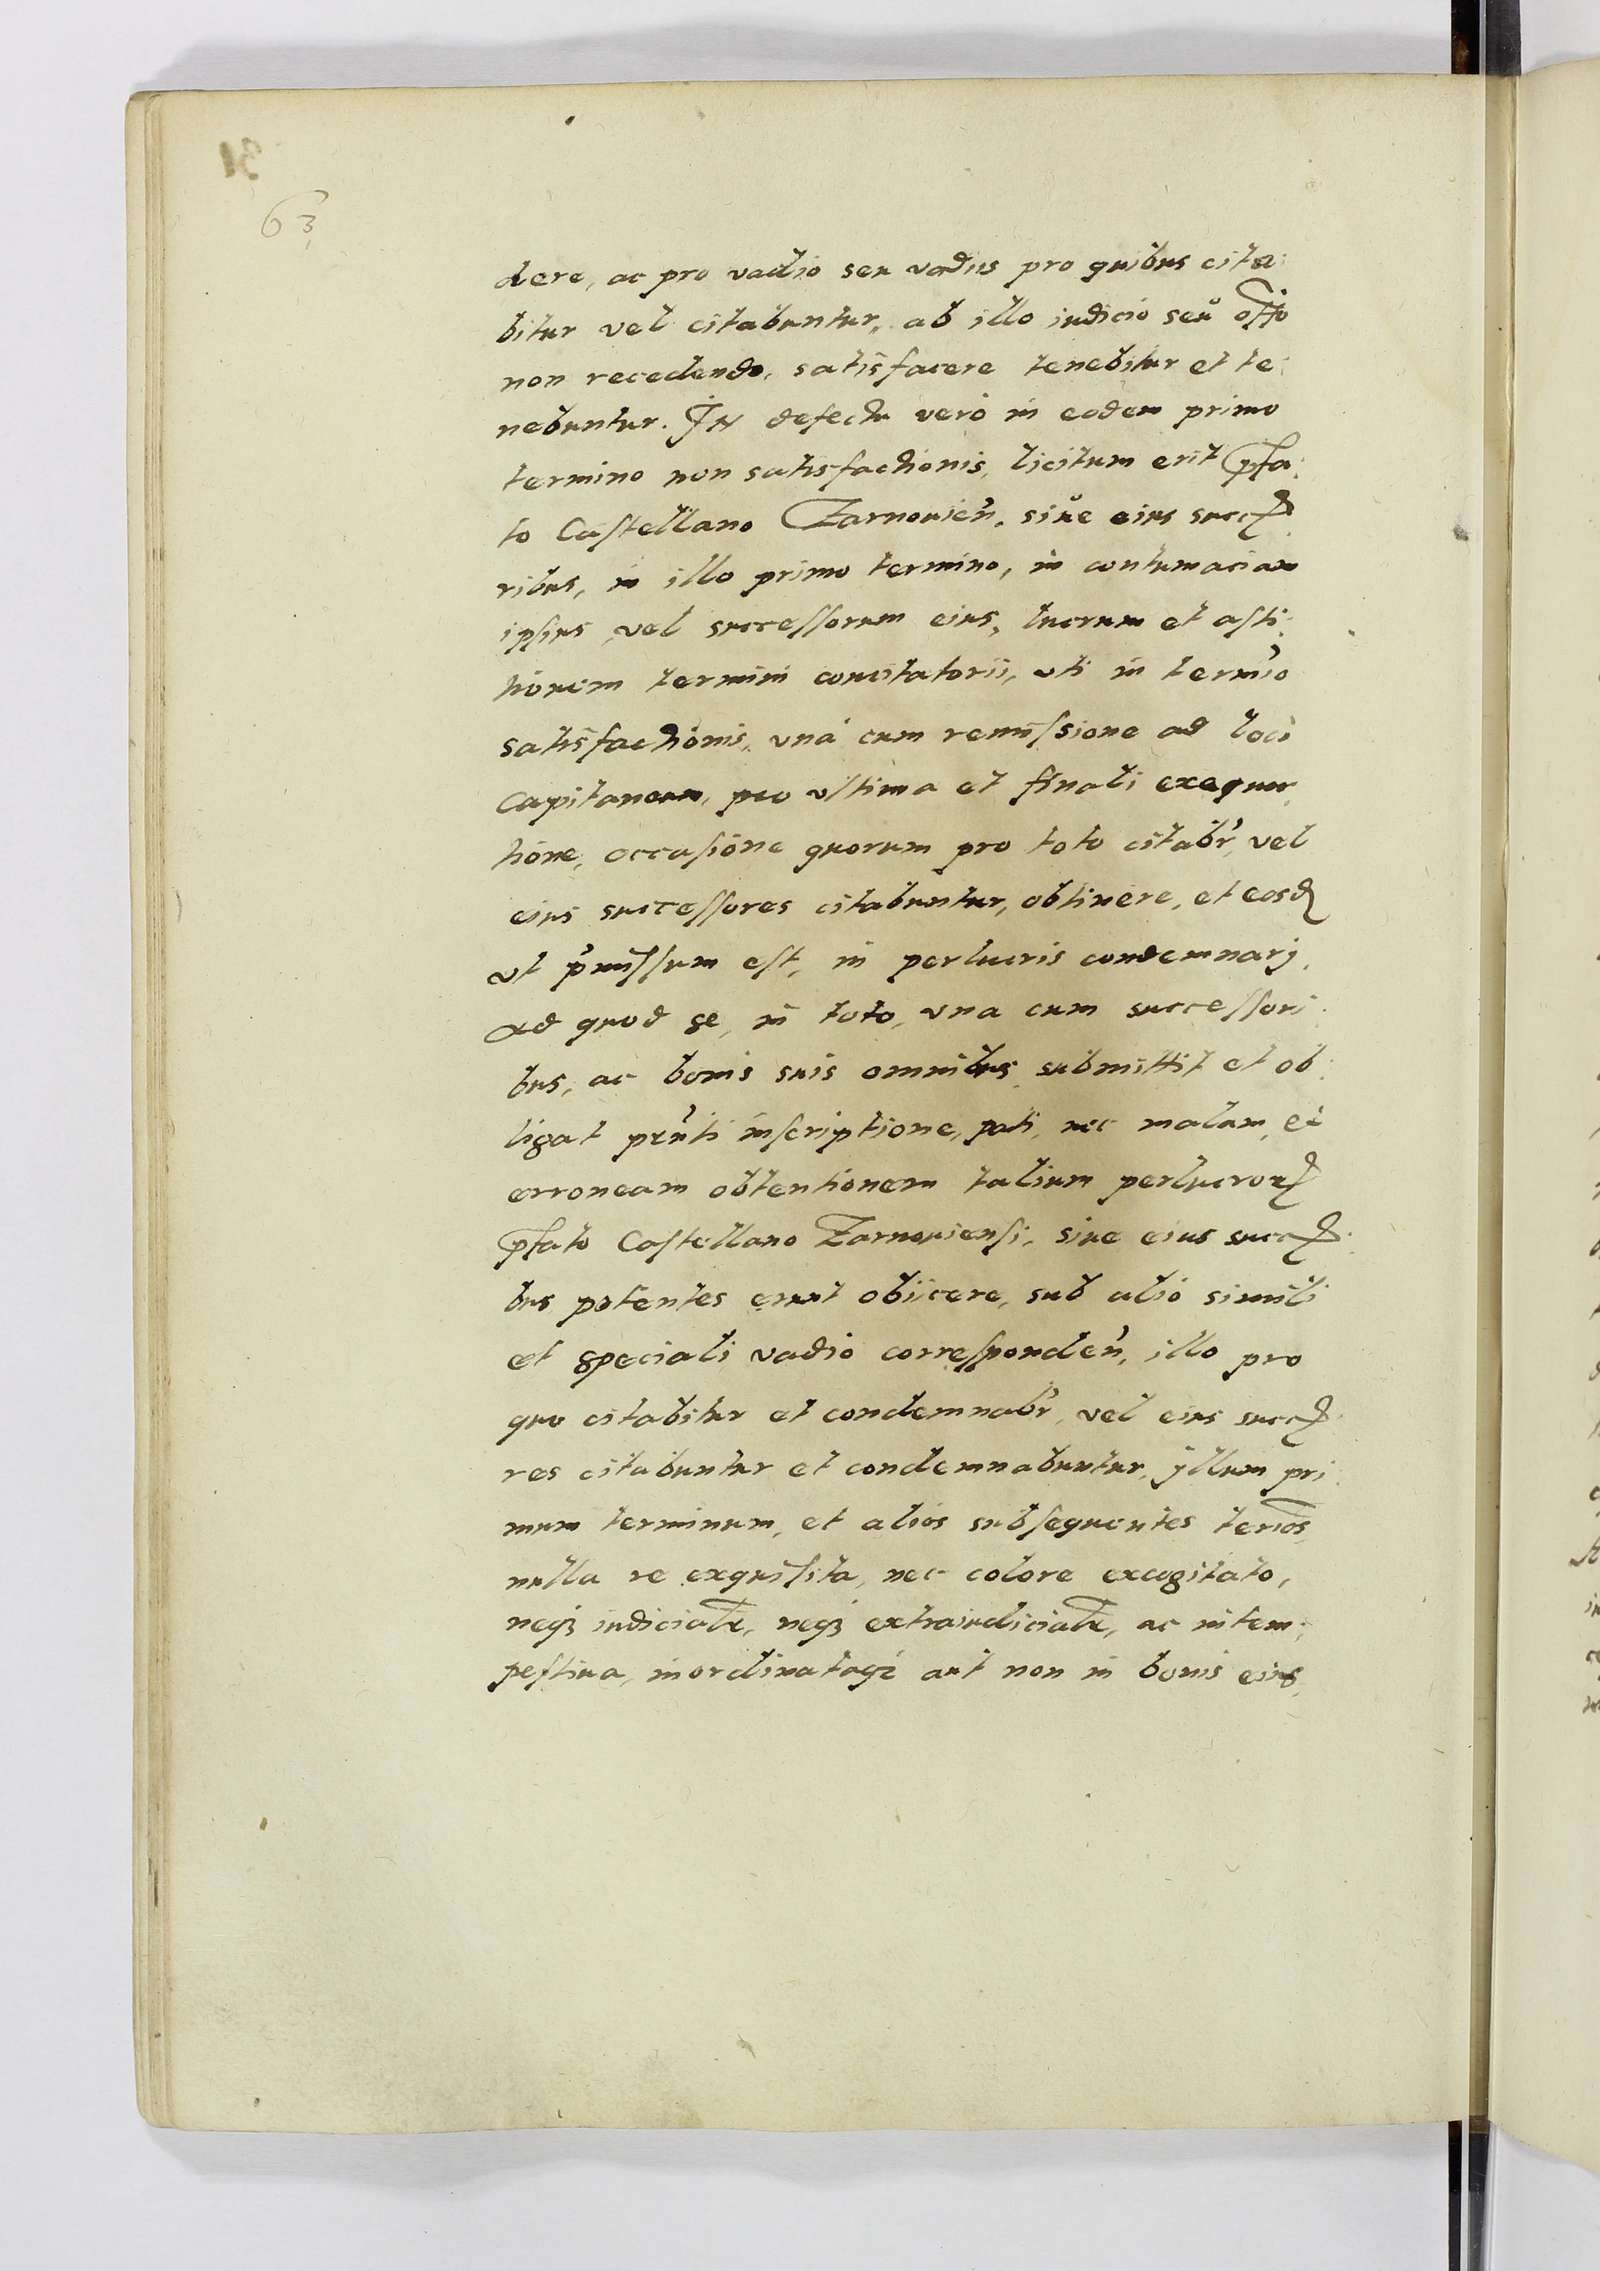 63
dere, ac pro vadio seu vadiis pro quibus cita:
bitur vel citabuntur, ab illo iudicio seu offo
non recedendo, satisfacere tenebitur et te:
nebuntur. In defectu verò in eodem primo
termino non satisfactionis, licitum erit pfa:
to Castellano Zarnouien̄, siue eius success
ribus, in illo primo termino, in contumaciam
ipsius, vel successorum eius, lucrum et asti:
tionem termini concitatorii, vti in termīo
satisfactionis, vnà cum remissione ad loci
Capitaneum, pro vltima et finali exequu:
tione, occasione quorum pro toto citabr̄, vel
eius successores citabuntur, obtinere, et eosd
vt p̄missum est, in perlucris condemnarj.
Ad quod se, in toto, vna cum successori:
bus, ac bonis suis omnibus submittit et ob:
ligat prn̄ti inscriptione, pati, nec malam, et
erroneam obtentionem talium perlucror
pfato Castellano Zarnouiensi, siue eius succ
bus potentes erunt obiicere, sub alio simili
et speciali vadio corresponden̄, illo pro
quo citabitur et condemnabr̄, vel eius succ
res citabuntur et condemnabuntur, jllum pri:
mum terminum, et alios subsequentes terīos,
nulla re exquisita, nec colore excogitato,
neqꝫ iudicialr̄, neqꝫ extraiudicialr̄, ac intem:
pestiua, inordinataqꝫ aut non in bonis eius,